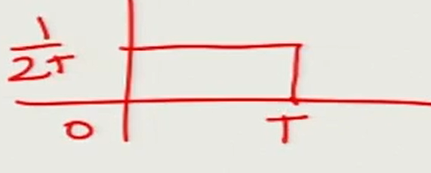 1/2T
0 T